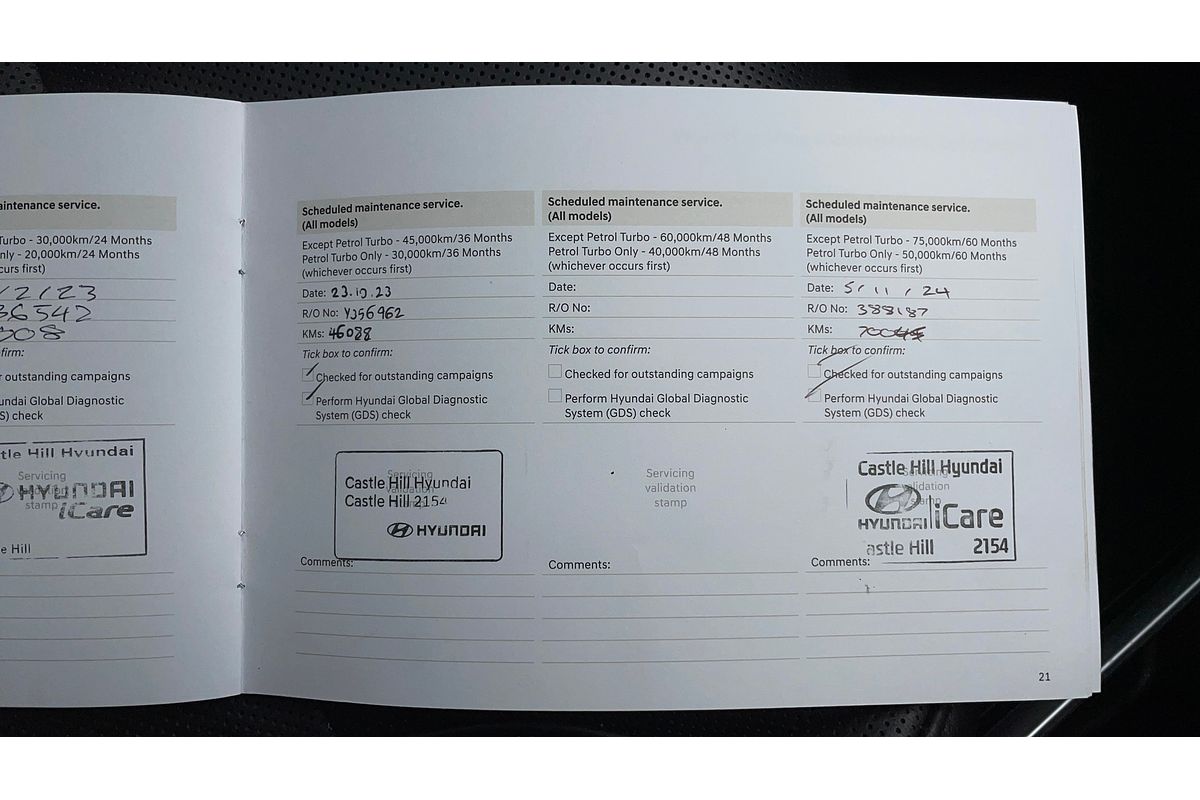 aintenance service.
Turbo - 30,000km/24 Months
Only - 20,000km/24 Months
curs first)
/2/23
36542
008
firm:
r outstanding campaigns
undai Global Diagnostic
S) check
tle Hill Hyundai
Servicing
validation
stamp
HYUNDAI
iCare
e Hill
Scheduled maintenance service.
(All models)
Except Petrol Turbo - 45,000km/36 Months
Petrol Turbo Only - 30,000km/36 Months
(whichever occurs first)
Date: 23.10.23
R/O No: YJ56962
KMs: 46088
Tick box to confirm:
Checked for outstanding campaigns
Perform Hyundai Global Diagnostic
System (GDS) check
Servicing
validation
Castle Hill Hyundai
Castle Hill 2154
HYUNDAI
Comments:
Scheduled maintenance service.
(All models)
Except Petrol Turbo - 60,000km/48 Months
Petrol Turbo Only - 40,000km/48 Months
(whichever occurs first)
Date:
R/O No:
KMs:
Tick box to confirm:
Checked for outstanding campaigns
Perform Hyundai Global Diagnostic
System (GDS) check
Servicing
validation
stamp
Comments:
Scheduled maintenance service.
(All models)
Except Petrol Turbo - 75,000km/60 Months
Petrol Turbo Only - 50,000km/60 Months
(whichever occurs first)
Date: 5/11/24
R/O No: 388187
KMs:
Tick box to confirm:
Checked for outstanding campaigns
Perform Hyundai Global Diagnostic
System (GDS) check
Castle Hill Hyundai
HYUNDAI iCare
astle Hill 2154
Comments:
21